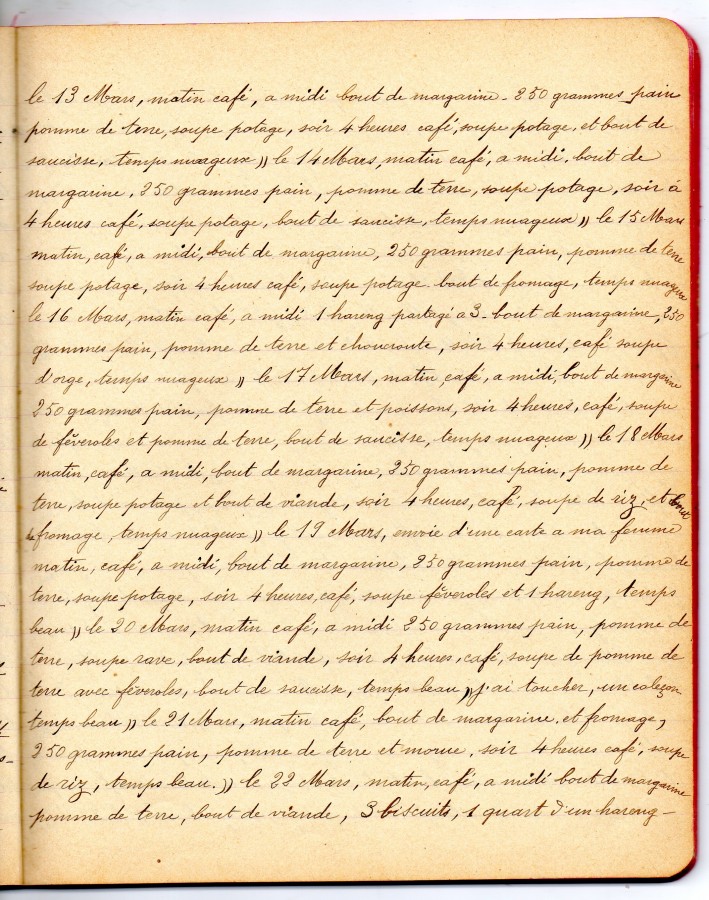 le 13 Mars, matin café, a midi bout de margarine - 250 grammes pain
pomme de terre, soupe potage, soir 4 heures café, soupe potage, et bout de
saucisse, temps nuageux )) le 14 Mars, matin café, a midi. bout de
margarine, 250 grammes pain, pomme de terre, soupe potage, soir à
4 heures café, soupe potage, bout de saucisse, temps nuageux )) le 15 Mars
matin, café, a midi, bout de margarine, 250 grammes pain, pomme de terre
soupe potage, soir 4 heures café, soupe potage - bout de fromage, temps nuageux
le 16 Mars, matin café, a midi 1 hareng partagé a 3 - bout de margarine, 250
grammes pain, pomme de terre et choucroute, soir 4 heures, café soupe
d'orge, temps nuageux )) le 17 Mars, matin, café, a midi, bout de margarine
250 grammes pain, pomme de terre et poissons, soir 4 heures, café, soupe
de féveroles et pomme de terre, bout de saucisse, temps nuageux )) le 18 Mars
matin, café, a midi, bout de margarine, 250 grammes pain, pomme de
terre, soupe potage et bout de viande, soir 4 heures, café, soupe de riz, et bout
de fromage, temps nuageux )) le 19 Mars, envoie d'une carte a ma femme
matin, café, a midi, bout de margarine, 250 grammes pain, pomme de
terre, soupe potage, soir 4 heures, café, soupe féveroles et 1 hareng, temps
beau )) le 20 Mars, matin café, a midi 250 grammes pain, pomme de
terre, soupe rave, bout de viande, soir 4 heures, café, soupe de pomme de
terre avec féveroles, bout de saucisse, temps beau )) j'ai toucher, un caleçon
temps beau )) le 21 Mars, matin café, bout de margarine. et fromage,
250 grammes pain, pomme de terre et morue, soir 4 heures café, soupe
de riz, temps beau. )) le 22 Mars, matin, café, a midi bout de margarine
pomme de terre, bout de viande, 3 biscuits, 1 quart d'un hareng -